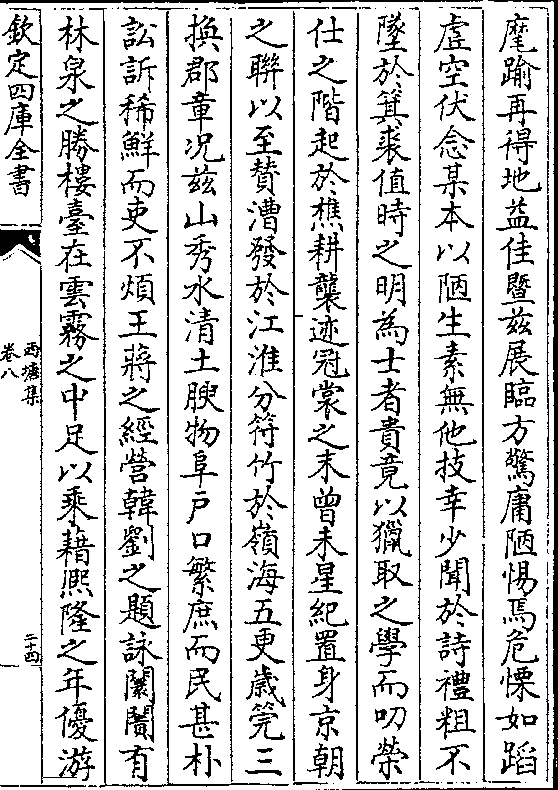 麾踰再得地益佳暨兹展臨方驚庸陋惕焉危慄如蹈
虚空伏念某本以陋生素無他技幸少聞於詩禮粗不
墜於箕裘值時之明為士者貴竟以獵取之學而叨榮
仕之階起於樵耕襲迹冠裳之末曾未星紀置身京朝
之聯以至賛漕發於江淮分符竹於嶺海五更歲筦三
換郡章况兹山秀水清土腴物阜戶口繁庶而民甚朴
訟訴稀鮮而吏不煩王蔣之經營韓劉之題詠闤闠有
林泉之勝樓臺在雲霧之中足以乘藉熈隆之年優游
欽定四庫全書
西塘集
卷八
二十四